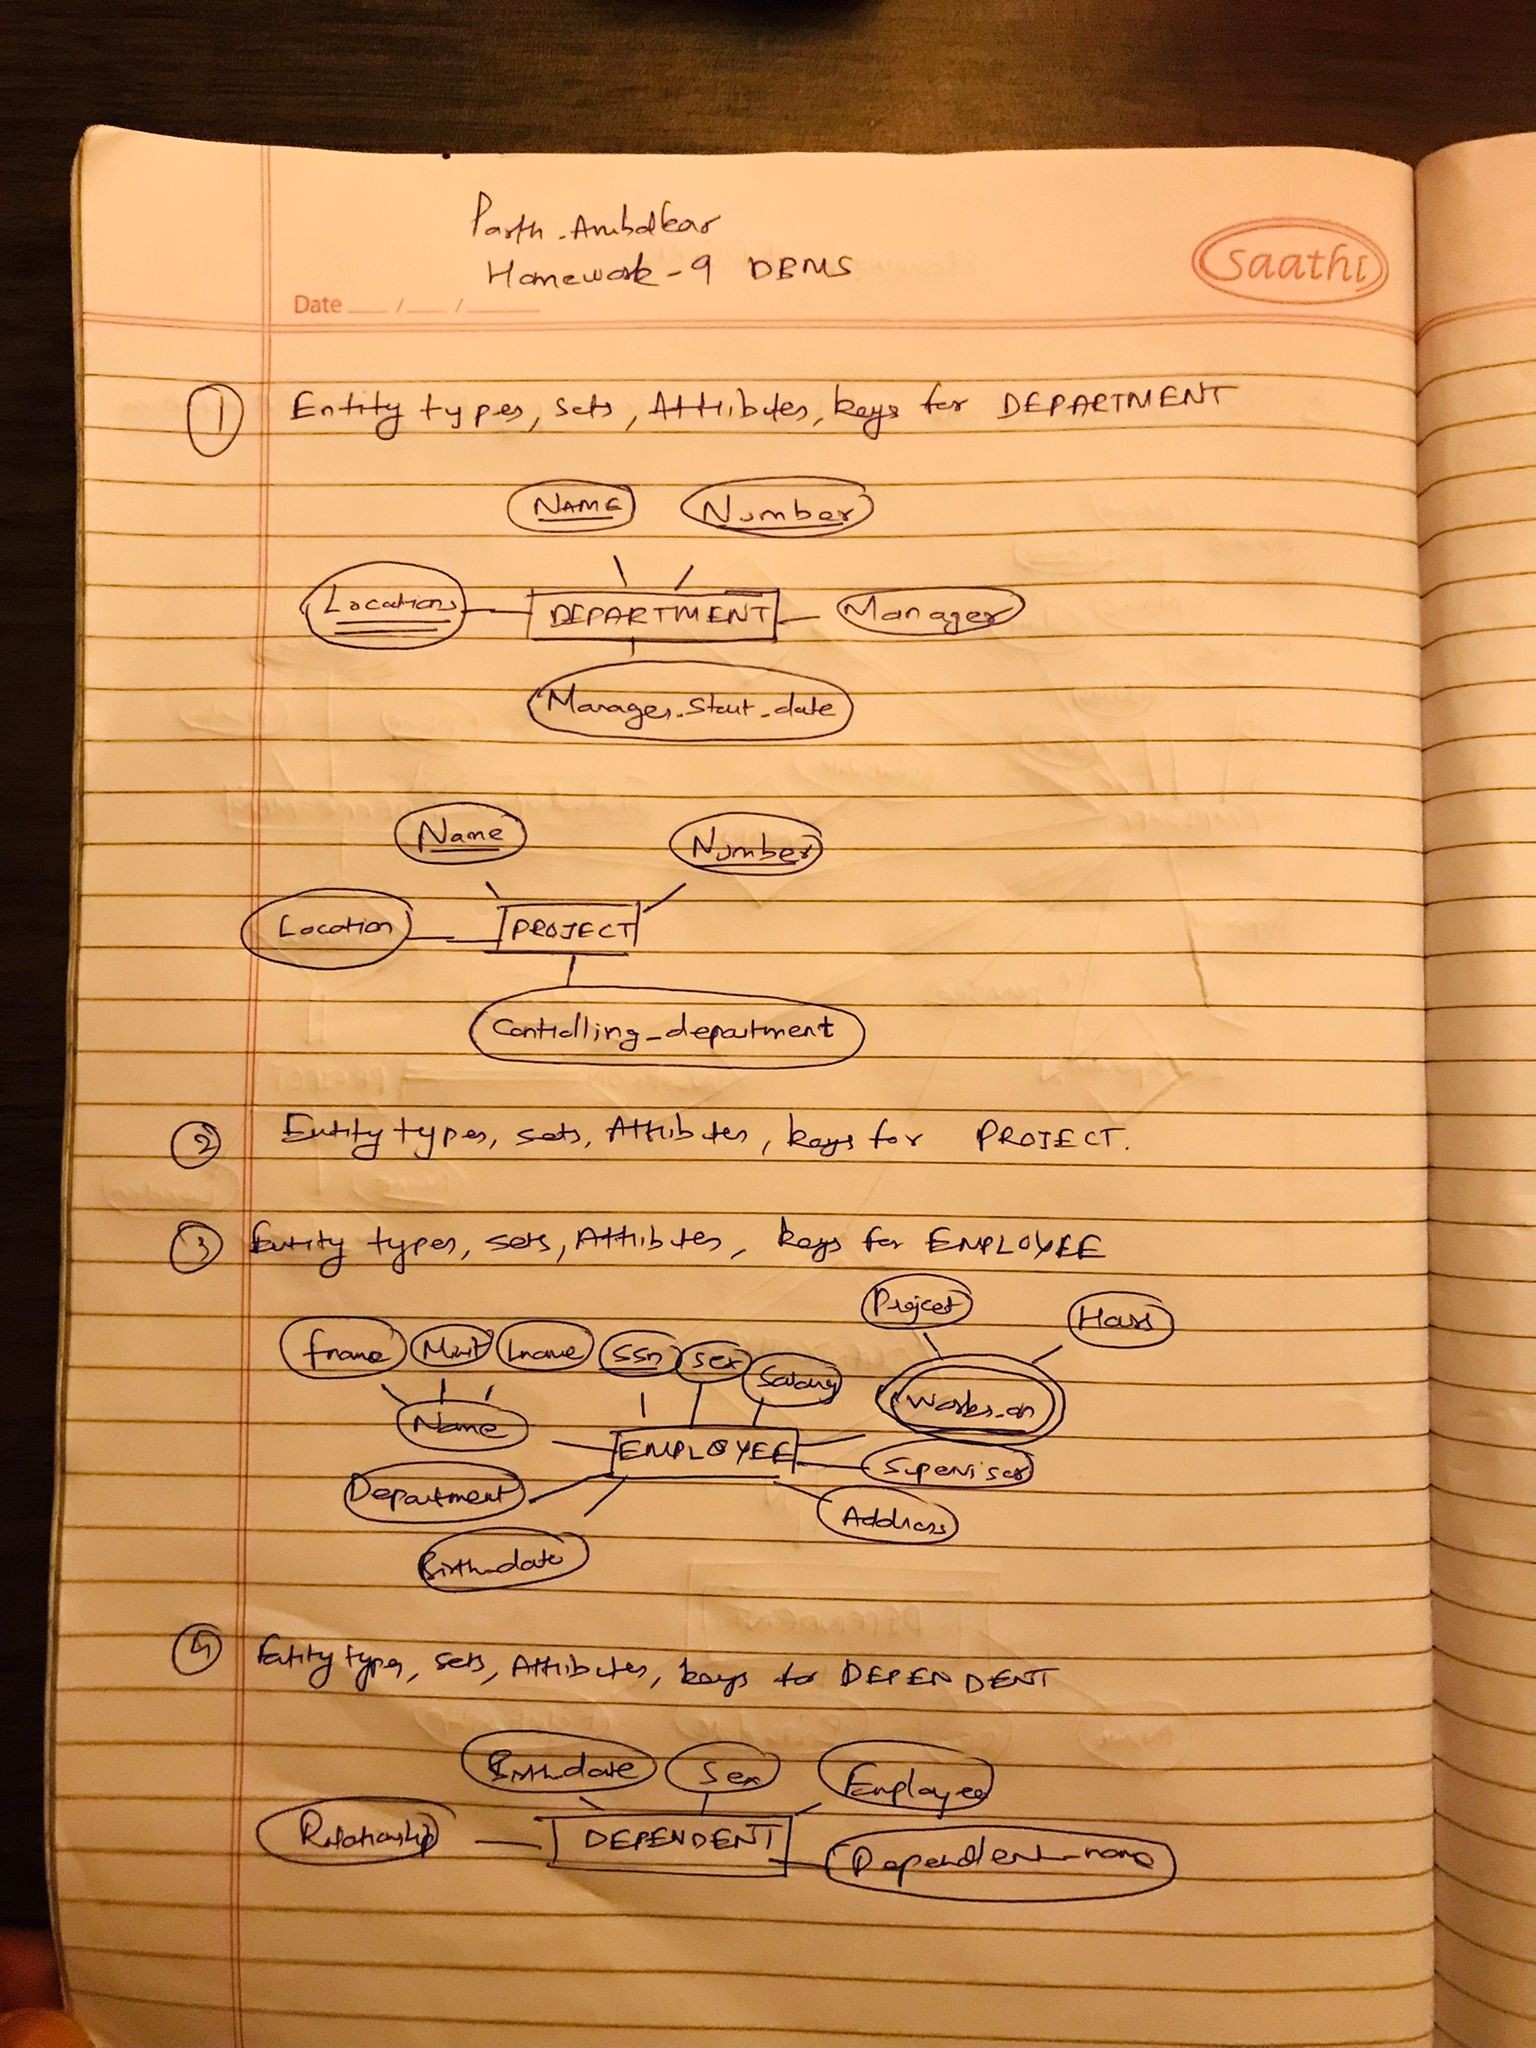 Parth Ambalkar
Homework-9 DBMS
saathi
Date __/__/____
1 Entity types, sets, Attributes, keys for DEPARTMENT
NAME Number
Locations DEPARTMENT Manager
Manager_Start_date
Name Number
Location PROJECT
Controlling_department
2 Entity types, sets, Attributes, keys for PROJECT.
3 Entity types, sets, Attributes, keys for EMPLOYEE
Project Hours
fname Minit Lname SSn Sex Salary
Name Works_on
EMPLOYEE Supervisor
Department Address
Birth_date
4 Entity types, sets, Attributes, keys for DEPENDENT
Birth_date Sex Employee
Relationship DEPENDENT Dependent_name